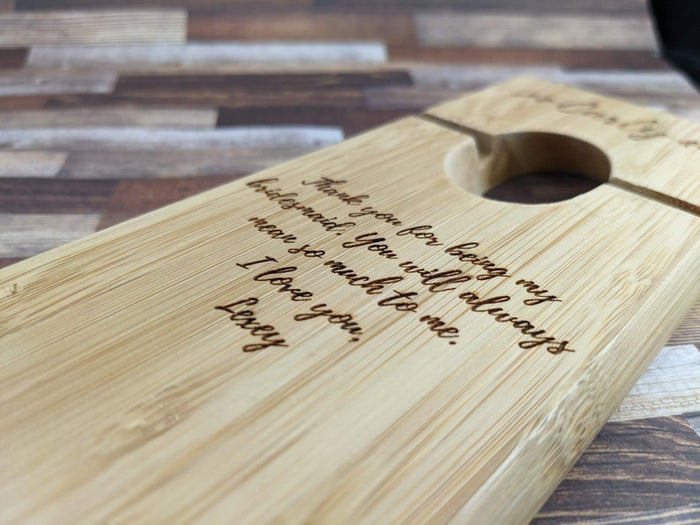 Thank you for being my
bridesmaid. You will always
mean so much to me.
I love you,
Lexey